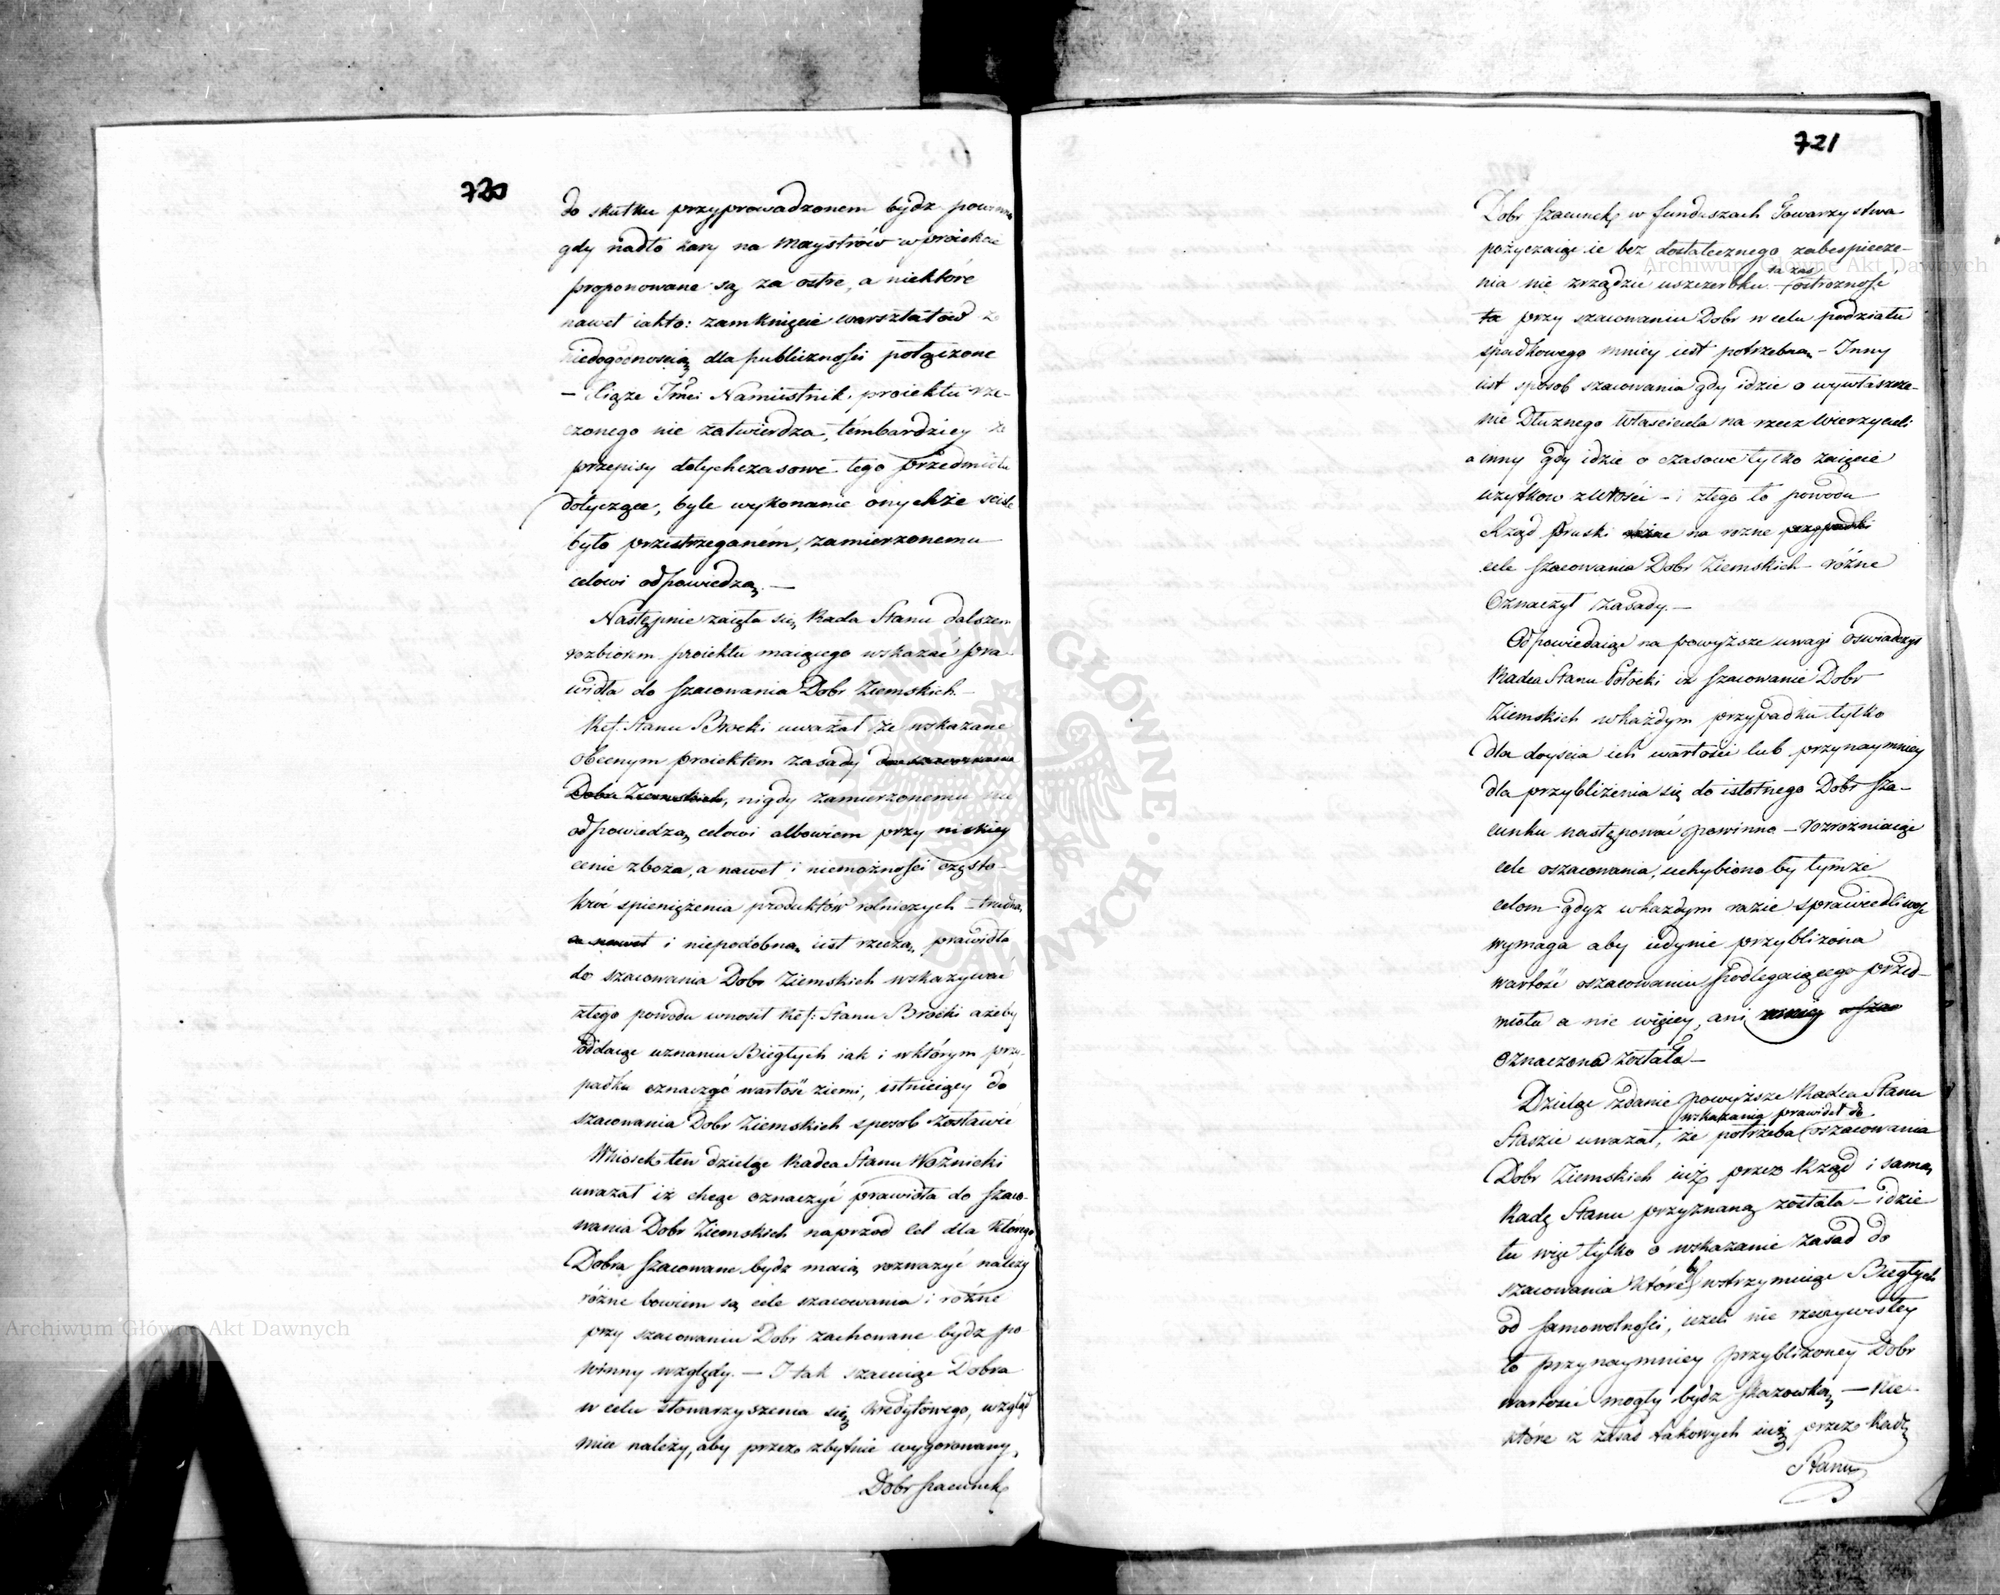 720
do skutku przyprowadzonem bydz powinno
gdy nadto kary na Maystrów w proiekcie
proponowane są za ostre, a niektóre
nawet iakto: zamknięcie warsztatów z
niedogodnością dla publicznosci połączone
— Xiąże Jmći Namiestnik proiektu rze-
czonego nie zatwierdza, tembardziey że
przepisy dotychczasowe tego przedmiotu
dotyczące, byle wykonanie onychże scisle
było przestrzeganém, zamierzonemu
celowi odpowiedzą. —
Następnie zaięła się Rada Stanu dalszem
rozbiorem proiektu maiącego wskazać pra-
widła do szacowania Dobr Ziemskich —
Ref. Stanu Brocki uważał że wskazane
obecnym proiektem zasady do szacowania
Dobr Ziemskich, nigdy zamierzonemu nie
odpowiedzą celowi albowiem przy niskiey
cenie zboża, a nawet i niemożnosci często-
kroć spieniężenia produktów rolniczych — trudną
a nawet i niepodobną iest rzeczą, prawidła
do szacowania Dobr Ziemskich wskazywać
ztego powodu wnosił Ref: Stanu Brocki ażeby
oddaiąc uznaniu Biegłych iak i wktórym przy-
padku oznaczyć wartość ziemi, istnieiący do
szacowania Dobr Ziemskich sposob zostawić
Wniosek ten dzieląc Radca Stanu Woźnicki
uważał iż chcąc oznaczyć prawidła do szaco-
wania Dobr Ziemskich naprzod cel dla którego
Dobra szacowane bydz maią rozważyć należy
różne bowiem są cele szacowania i rożne
przy szacowaniu Dobr zachowane bydz po-
winny względy. — I tak szacuiąc Dobra
w celu stowarzyszenia się kredytowego, wzgląd
mieć należy, aby przez zbytnie wygorowany,
Dobr szacunek
721
Dobr szacunek w funduszach Towarzystwa
pożyczaiąc ie bez dostatecznego zabespiecze-
nia nie zrządzić uszczerbku —
ta zas
ostrożność
ta przy szacowaniu Dobr w celu podziału
spadkowego mniey iest potrzebną — Inny
iest sposob szacowania gdy idzie o wywłaszcze-
nie Dłużnego Własciciela na rzecz Wierzycieli
a inny gdy idzie o czasowe tylko zaięcie
użytkow z Włości — i ztego to powodu
Rząd Pruski różne na rozne przypadki
cele szacowania Dobr Ziemskich — różne
oznaczył zasady. —
Odpowiadaiąc na powyższe uwagi oswiadczył
Radca Stanu Potocki iż szacowanie Dobr
Ziemskich wkażdym przypadku tylko
dla doyscia ich wartości lub przynaymniey
dla przybliżenia się do istotnego Dobr sza-
cunku następować powinno — rozrożniaiąc
cele oszacowania, uchybiono by tymże
celom gdyz wkażdym razie sprawiedliwość
wymaga aby iedynie przybliżona
wartość oszacowaniu podlegaiącego przed-
miotu a nie więcey, ani mniey
oznaczona została —
Dzieląc zdanie powyższe Radca Stanu
wskazania prawideł do
Staszic uważał, że potrzeba oszacowania
Dobr Ziemskich iuż przez Rząd i samą
Radę Stanu przyznaną została — idzie
tu więc tylko o wskazanie zasad do
szacowania które by wstrzymuiąc Biegłych
od samowolności, ieżeli nie rzeczywistey
to przynaymniey przybliżoney Dobr
wartości mogły bydz skazówką — Nie-
które z zasad takowych iuż przez Radę
Stanu